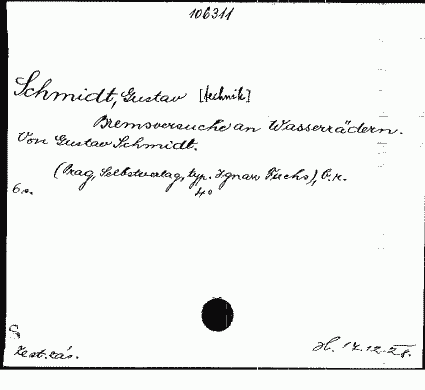 106311
Schmidt, Gustav [technik]
Bremsversuche an Wasserrädern.
Von Gustav Schmidt.
(Prag, Selbstverlag, typ. Ignaz Fuchs), b.r.
6 s. 4°
Zest. čás. H. 17.12.28.